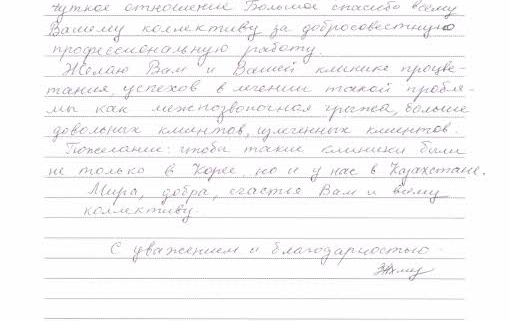 чуткое отношение Большое спасибо всему
Вашему коллективу за добросовестную
профессиональную работу.
Желаю Вам и Вашей клинике процве-
тания, успехов в лечении такой пробле-
мы как межпозвоночная грыжа, больше
довольных клиентов, излеченных клиентов.
Пожелание: чтобы такие клиники были
не только в Корее, но и у нас в Казахстане.
Мира, добра, счастья Вам и всему
коллективу.
С уважением и благодарностью